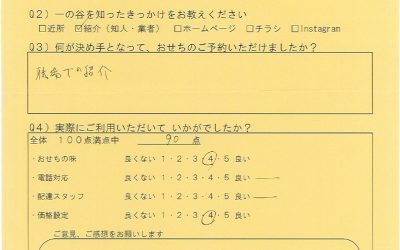 Q2) 一の谷を知ったきっかけをお教えください
□近所 ☑紹介（知人・業者） □ホームページ □チラシ □Instagram
Q3) 何が決め手となって、おせちのご予約いただけましたか？
職場での紹介
Q4) 実際にご利用いただいて いかがでしたか？
全体 100点満点中 90 点
・おせちの味 良くない 1・2・3・4・5 良い
・電話対応 良くない 1・2・3・4・5 良い
・配達スタッフ 良くない 1・2・3・4・5 良い
・価格設定 良くない 1・2・3・4・5 良い
ご意見、ご感想をお願いします